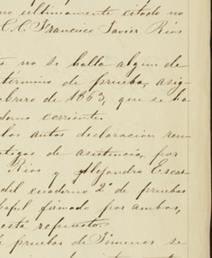 no ultimamente citado no
C. C. Francisco Javier Rios
no se halla algun de
término de prueba, asig-
brero de 1863, que se ha
derno corriente.
los autos declaracion ren-
tigos de asistencia, por
Rios y Alejandro Escar-
del cuaderno 2º de pruebas
papel firmado por ambos,
está repuesto.
pruebas de Jimenez se